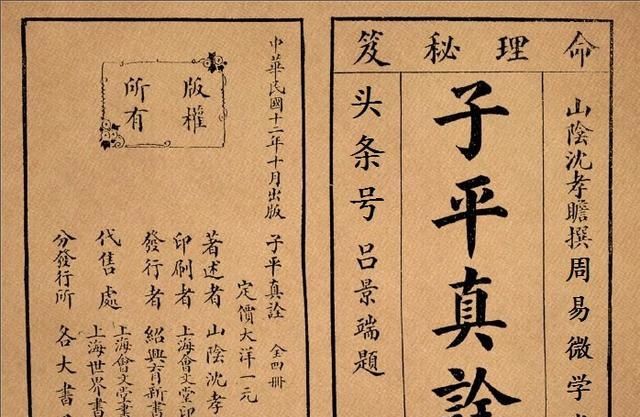 命理秘笈
山陰沈孝瞻撰周易微学
子平真詮
头条号吕景端題
版權
所有
中華民國十二年十月出版
子平真詮 全四冊
定價大洋一元
著述者 山陰沈孝
印刷者 上海會文堂印
發行者 紹興育新書
代售處 上海會文堂書
上海世界書
分發行所 各大書